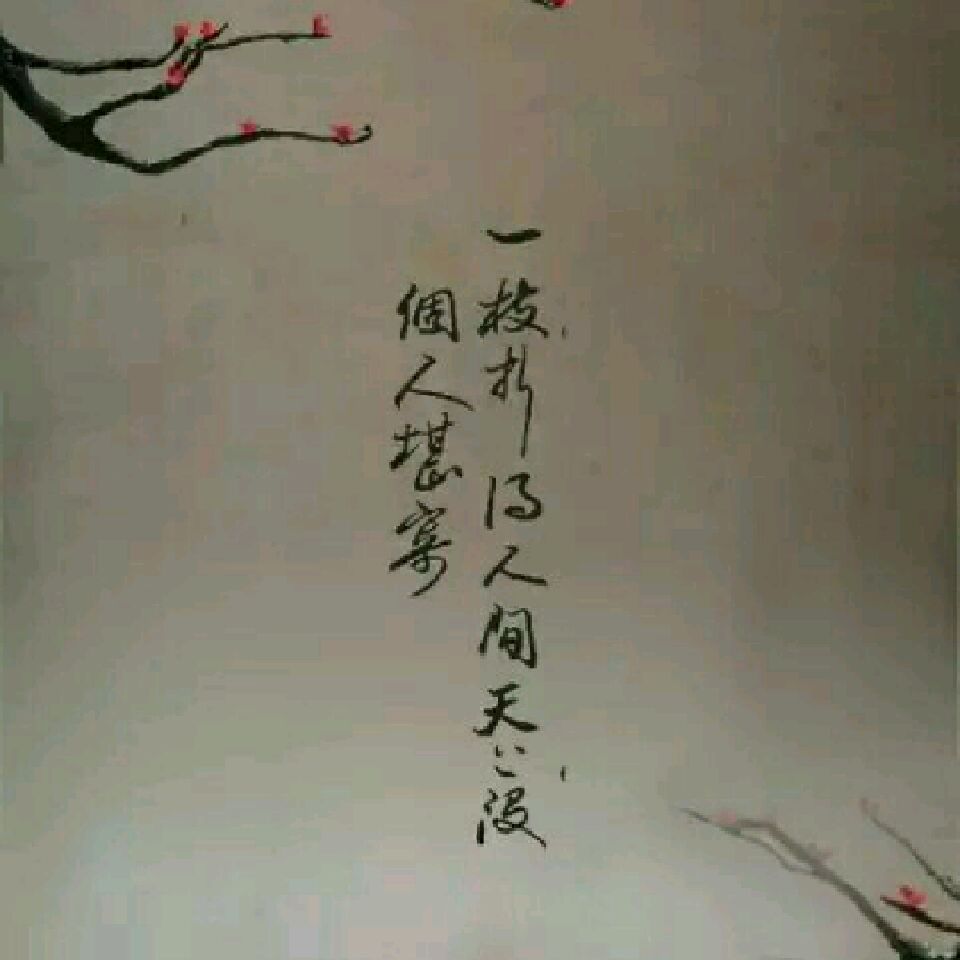 一枝折得人間天上没
個人堪寄